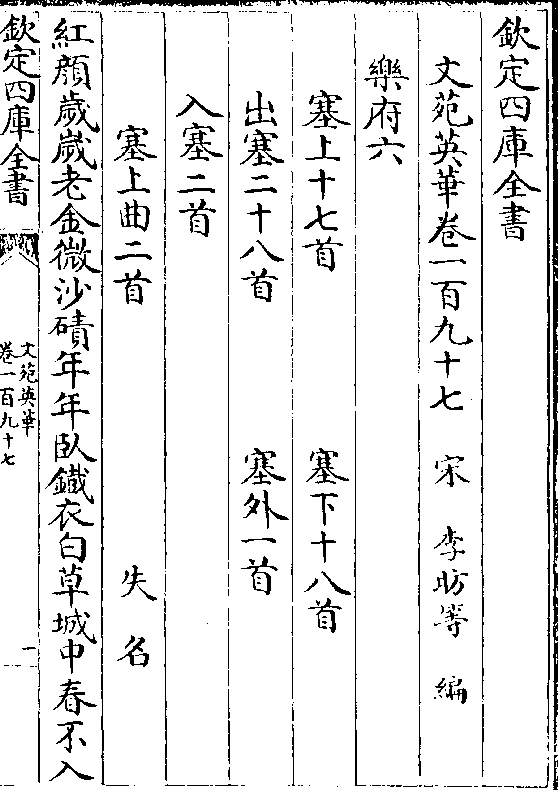 欽定四庫全書
文苑英華卷一百九十七 宋 李昉等 編
樂府六
塞上十七首 塞下十八首
出塞二十八首 塞外一首
入塞二首
塞上曲二首 失名
紅顔歲歲老金微沙磧年年臥鐵衣白草城中春不入
欽定四庫全書
文苑英華
卷一百九十七
一